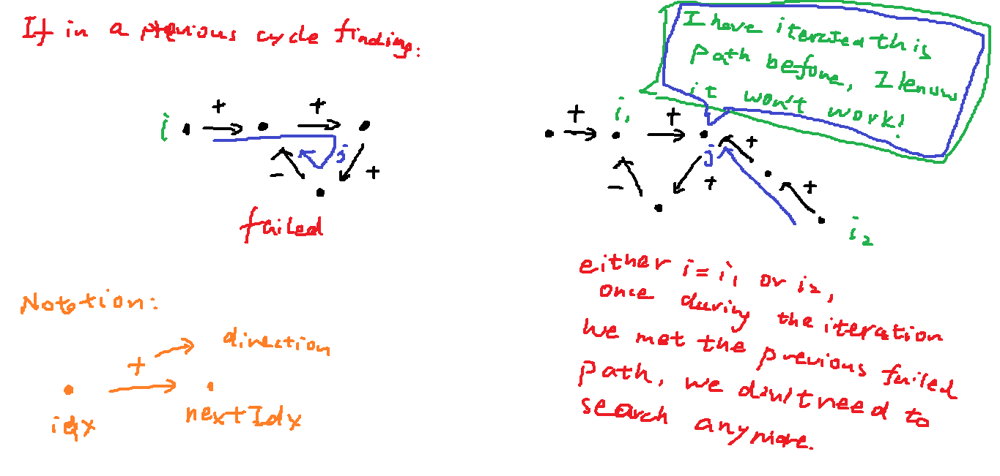 If in a previous cycle finding:
i
+
+
j
+
-
failed
I have iterated this
path before, I know
it won't work!
+
i₁
+
j
+
+
-
+
i₂
either i=i₁ or i₂,
once during the iteration
we met the previous failed
path, we don't need to
search anymore.
Notation:
+
direction
idx
nextIdx